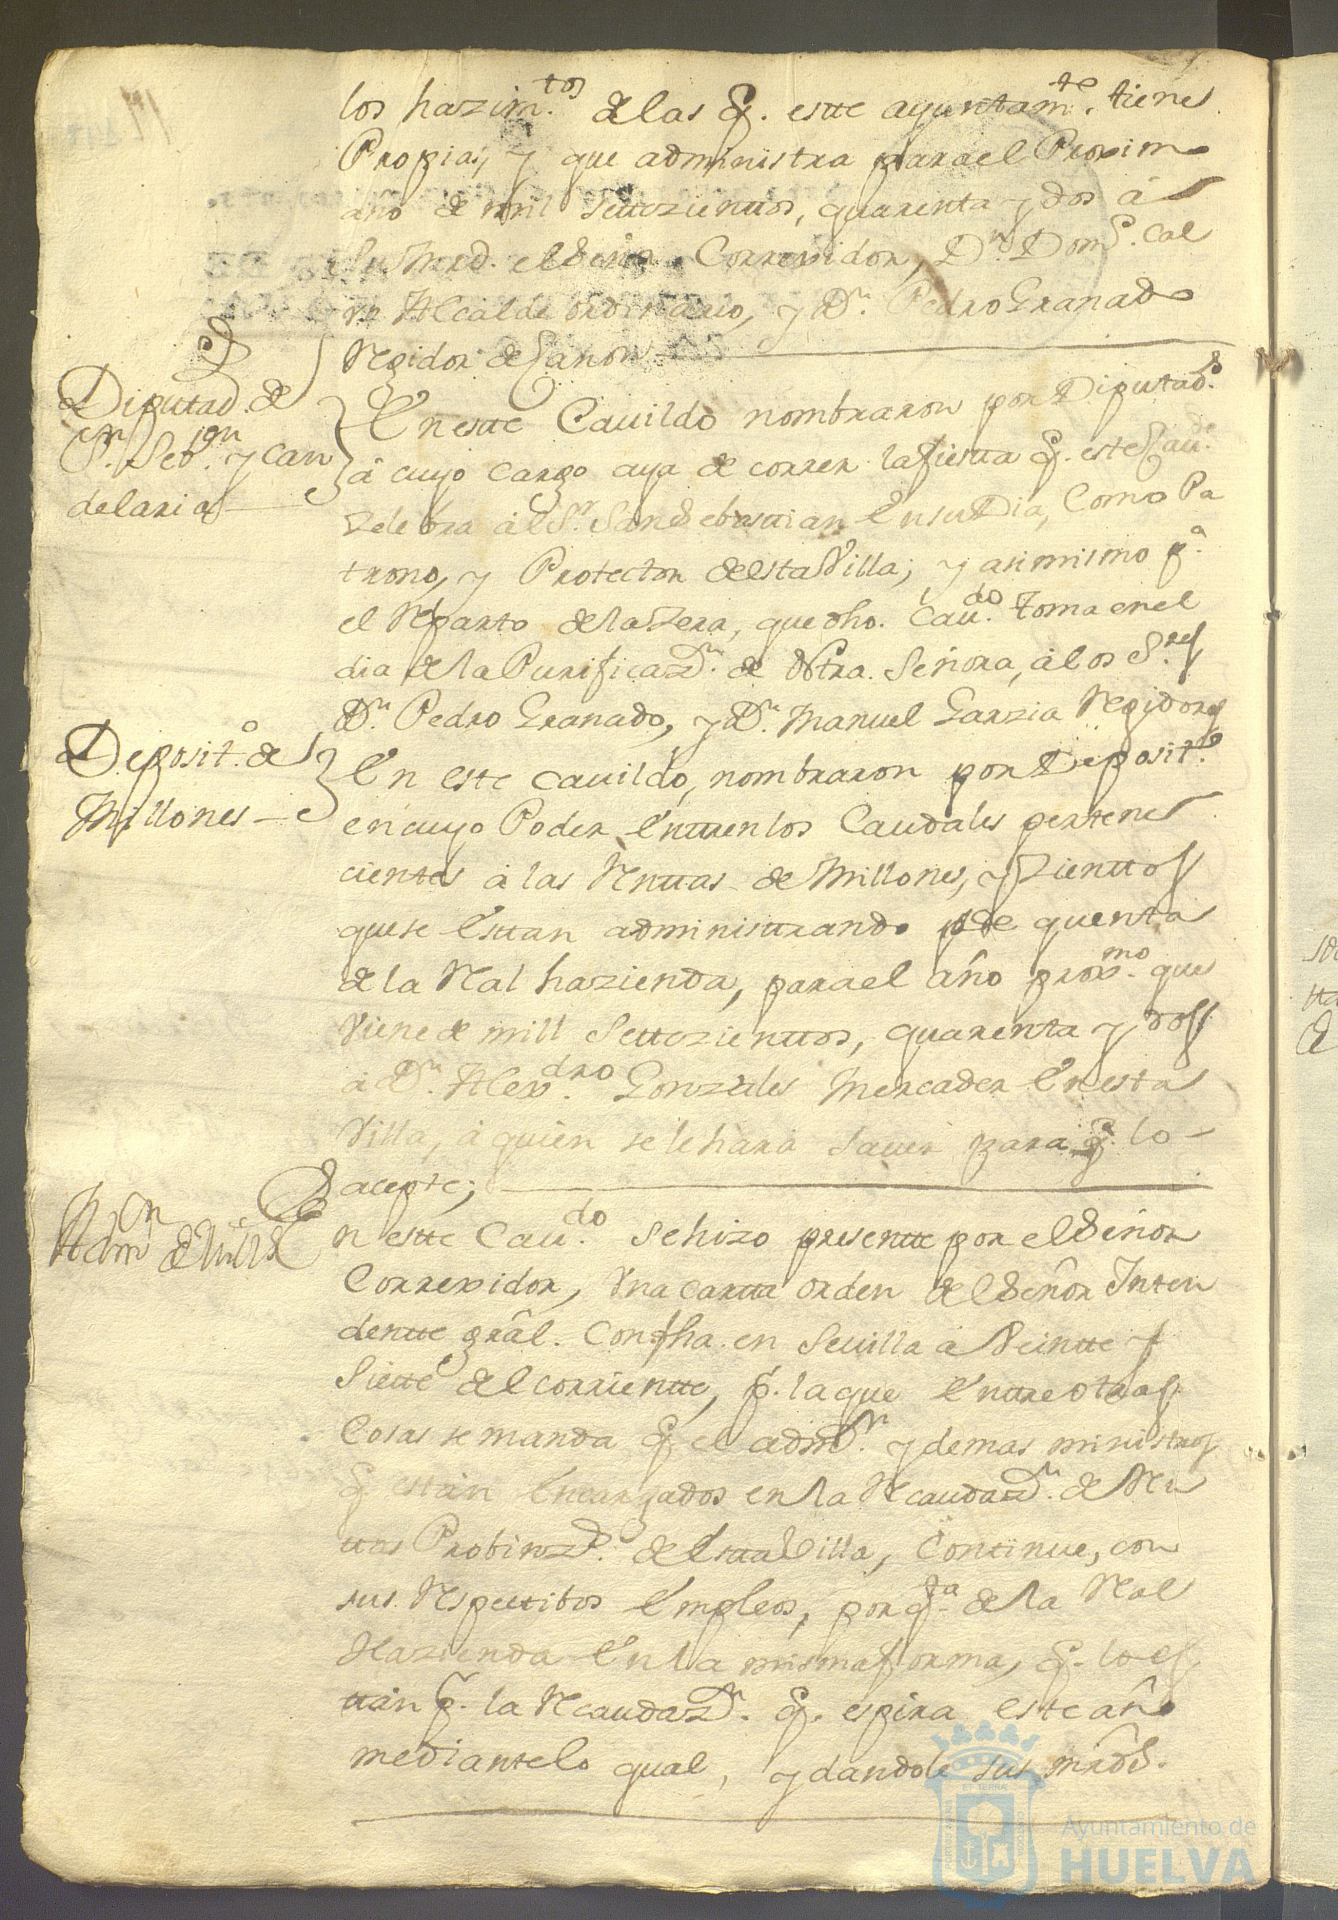 los hazim.tos de las q. estte ayuntam.te tiene
Propias, y que administra para el Proximo
año de mil settezienttos, quarenta y dos á
Su Mrd. el Señor Correxidor, Dn. Dom.o Cal
vo Alcalde ordinario, y Dn. Pedro Granado
Regidor de Canon
Diputad.s de
Sn. Seb.n y Can
delaria
En estte Cauildo nombraron por Diputad.s
á cuyo cargo aya de correr la fiestta q. este Cau.do
Zelebra al Sr. San Sebasttian En su Dia, Como Pa
trono, y Protector de esta Villa; y asimismo p.a
el Reparto de la Zera, que dho. Cau.do toma en el
dia de la Purificaz.n de Ntra. Señora, á los S.res
Dn. Pedro Granado, y Dn. Manuel Garzia Regidores
Deposit.o de
Millones
En este cauildo, nombraron por Deposit.o
en cuyo Poder Enttren los Caudales pertene
cientes á las Renttas de Millones, y Zienttos
que se Esttan administtrando de quenta
de la Real hazienda, para el año prox.mo que
Viene de mill Settezienttos, quarenta y dos
á Dn. Alex.dro Gonzales Mercader En esta
Villa, á quien se le hará sauer para q. lo
acepte;
Adm.n de Mill.s
En estte Cau.do se hizo presentte por el Señor
Correxidor, Vna cartta orden del Señor Inten
dentte grãl. Con fha. en Seuilla á Veintte y
Siette del corrientte, p. la que Enttre otras
Cosas se manda q. el adm.r y demas ministros
q. están Encargados en la Recaudaz.n de Ren
ttas Probinz.s de Estta Villa, Continue, con
sus Respecttibos Empleos, por q.ta de la Real
Hazienda En la misma forma, q. lo es
ttán p. la Recaudaz.n q. espira este año
mediante lo qual, y dandole sus mrds.
Ayuntamiento de
HUELVA